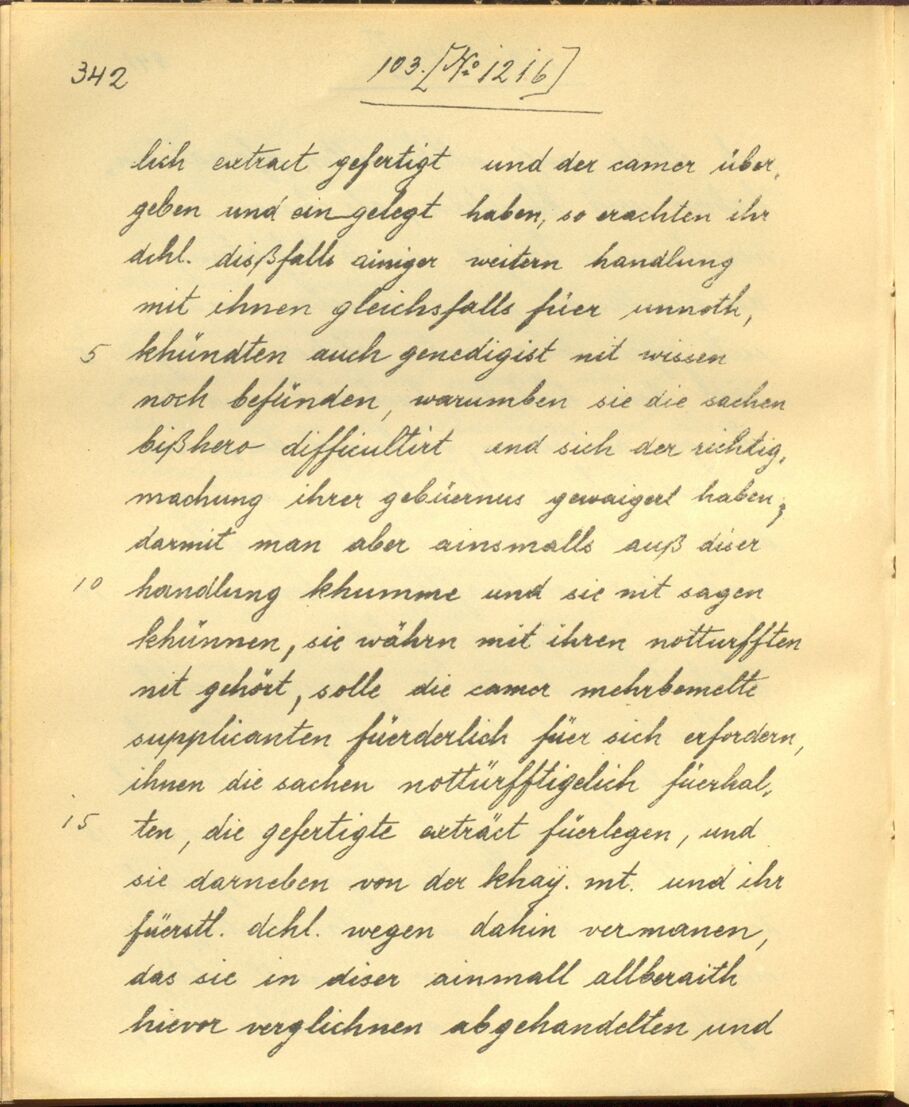 342
103. [No 1216]
lich extract gefertigt und der camer über,
geben und ein gelegt haben, so erachten ihr
dchl. dißfalls ainiger weitern handlung
mit ihnen gleichsfalls füer unnoth,
5 khündten auch genedigist nit wissen
noch befünden, warumben sie die sachen
bißhero difficultirt und sich der richtig,
machung ihrer gebüernus gewaigert haben;
darmit man aber ainsmalls auß diser
10 handlung khumme und sie nit sagen
khünnen, sie währn mit ihren notturfften
nit gehört, solle die camer mehrbemelte
supplicanten füerderlich füer sich erfordern,
ihnen die sachen nottürfftigelich füerhal,
15 ten, die gefertigte exträct füerlegen, und
sie darneben von der khaÿ. mt. und ihr
füerstl. dchl. wegen dahin vermanen,
das sie in diser ainmall allberaith
hievor verglichnen abgehandelten und